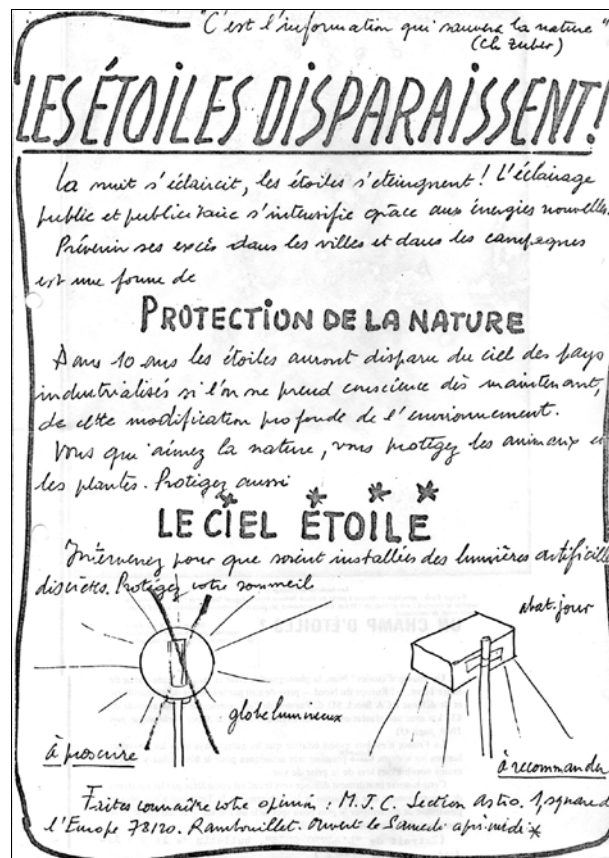 "C'est l'information qui sauvera la nature"
(Ch. Zuber)
LES ÉTOILES DISPARAISSENT!
La nuit s'éclaircit, les étoiles s'éteingnent! L'éclairage
public et publicitaire s'intensifie grâce aux énergies nouvelles.
Prévenir ses excès dans les villes et dans les campagnes
est une forme de
PROTECTION DE LA NATURE
Dans 10 ans les étoiles auront disparu du ciel des pays
industrialisés si l'on ne prend conscience dès maintenant,
de cette modification profonde de l'environnement.
Vous qui aimez la nature, vous protégez les animaux et
les plantes. Protégez aussi
LE CIEL ÉTOILE
Intervenez pour que soient installées des lumières artificielle
discrètes. Protégez votre sommeil
abat-jour
globe lumineux
à proscrire
à recommander
Faites connaître votre opinion : M.J.C. Section astro. 1, square de
l'Europe 78120. Rambouillet. Ouvert le Samedi après-midi
UN CHAMP D'ÉTOILES ?